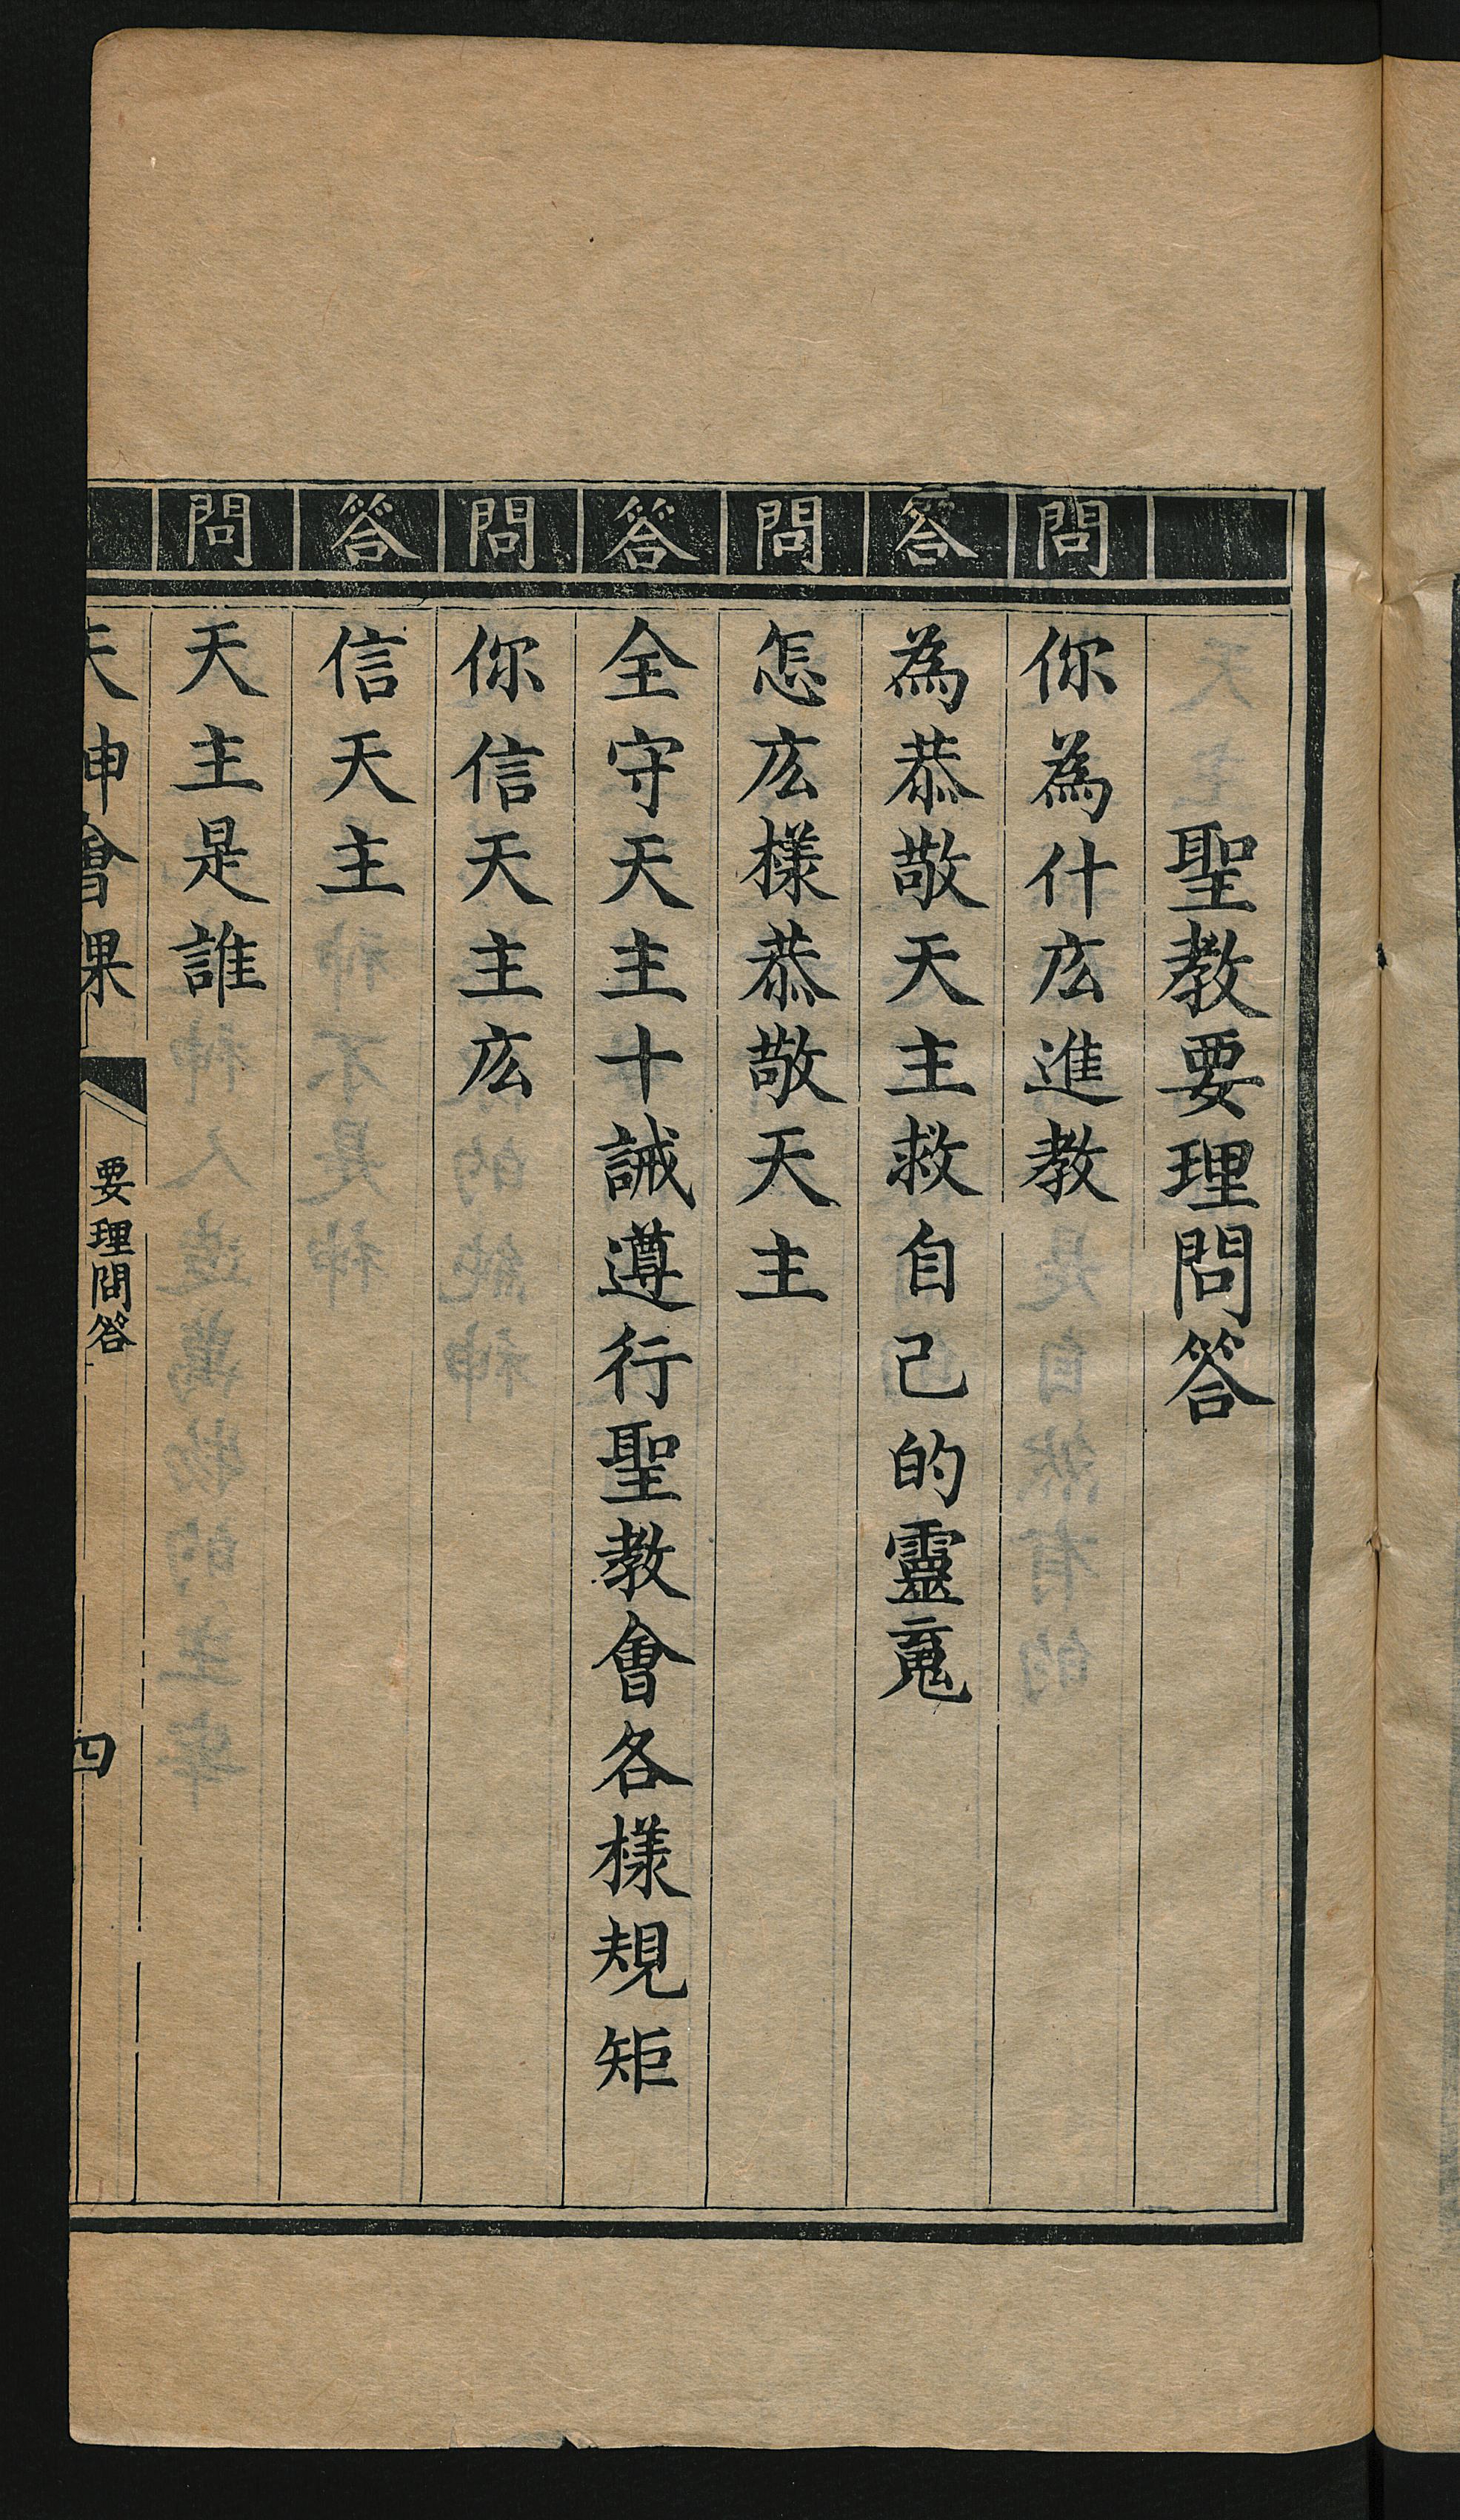 聖教要理問答
問 你為什庅進教
答 為恭敬天主救自己的靈䰟
問 怎庅樣恭敬天主
答 全守天主十誡遵行聖教會各樣規矩
問 你信天主庅
答 信天主
問 天主是誰
天神會課 要理問答 四